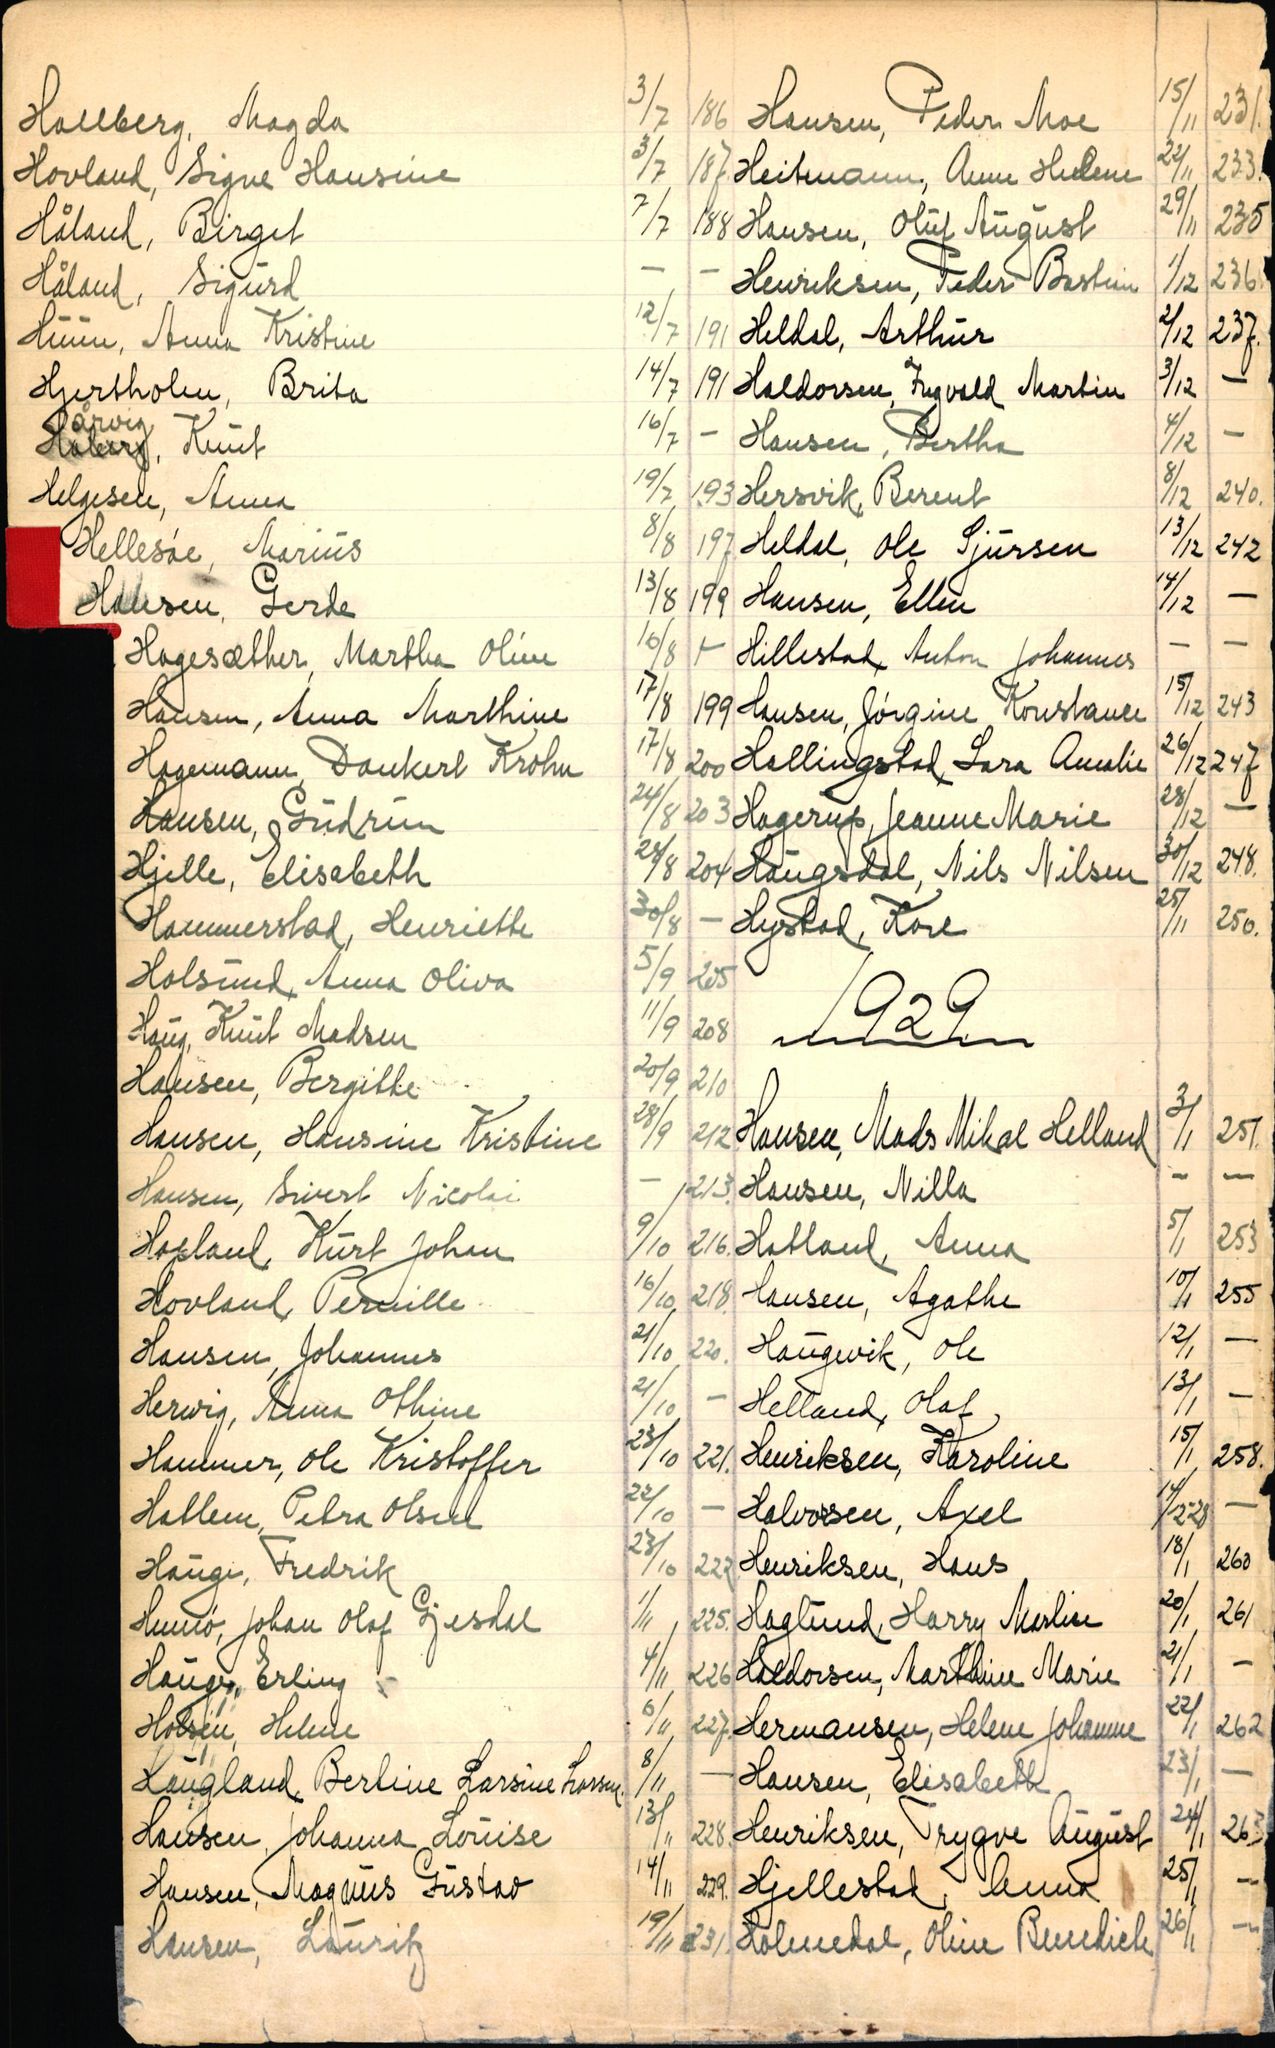 Hallberg, Magda 3/7 186
Hovland, Signe Hansine 3/7 187
Håland, Birget 7/7 188
Håland, Sigurd - -
Huun, Anna Kristine 12/7 191
Hjertholm, Brita 14/7 191
årvig
Håberg, Knut 16/7 -
Helgesen, Anna 19/7 193
Hellesøe, Marius 8/8 197
Hansen, Gerde 13/8 199
Hagesæther, Martha Oline 16/8 -
Hansen, Anna Marthine 17/8 199
Hagemann, Dankert Krohn 17/8 200
Hansen, Gudrun 24/8 203
Hjelle, Elisabeth 28/8 204
Hammerstad, Henriette 30/8 -
Holsund, Anna Oliva 5/9 205
Haug, Knut Madsen 11/9 208
Hansen, Bergitte 20/9 210
Hansen, Hansine Kristine 28/9 212
Hansen, Sivert Nicolai - 213.
Hopland, Kurt Johan 9/10 216.
Hovland, Pernille 16/10 218.
Hansen, Johannes 21/10 220.
Herwig, Anna Othine 21/10 -
Hammer, Ole Kristoffer 23/10 221.
Hatlem, Petra Olsen 22/10 -
Hauge, Fredrik 23/10 222
Hunnö, Johan Olaf Gjesdal 1/11 225.
Hauge, Erling 4/11 226
Helene 6/11 227.
Haugland, Bertine Larsine Larsen. 8/11 -
Hansen, Johanna Louise 13/11 228.
Hansen, Magnus Gustav 14/11 229.
Hansen, Lauritz 19/11 231.
Hansen, Peder Moe 15/11 231.
Heitmann, Anne Helene 22/11 233.
Hansen, Oluf August 29/11 235
Henriksen, Peder Bastian 1/12 236
Heldal, Arthur 2/12 237.
Haldorsen, Ingvald Martin 3/12 -
Hansen, Bertha 4/12 -
Hersvik, Berent 8/12 240.
Heldal, Ole Sjursen 13/12 242
Hansen, Ellen 14/12 -
Hillestad, Anton Johannes - -
Hansen, Jörgine Konstance 15/12 243
Hallingstad, Lara Amalie 26/12 247
Hagerup, Jeanne Marie 28/12 -
Haugsdal, Nils Nilsen 30/12 248.
Hystad, Kåre 25/11 250.
1929
Hansen, Mads Mikal Helland 3/1 251.
Hansen, Nilla - -
Hatland, Anna 5/1 253
Hansen, Agathe 10/1 255
Haugevik, Ole 12/1 -
Helland, Olaf 13/1 -
Henriksen, Karoline 15/1 258.
Halvorsen, Axel 14/12-28 -
Henriksen, Hans 18/1 260
Haglund, Harry Martin 20/1 261
Haldorsen, Marthine Marie 21/1 -
Hermansen, Helene Johanne 22/1 262
Hansen, Elisabeth 23/1 -
Henriksen, Trygve August 24/1 263
Hjellestad, Anna 25/1 -
Holmedal, Oline Bendicte 26/1 -